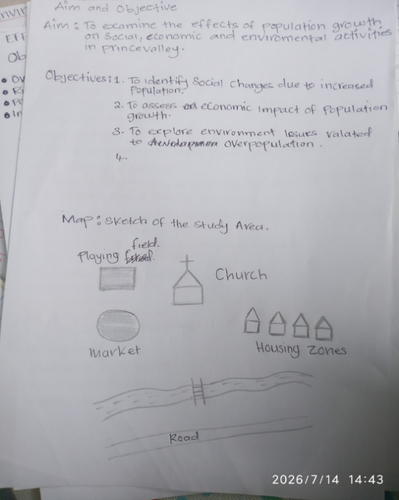 Aim and Objective
Aim : To examine the effects of population growth
on social, economic and enviromental activities
in princevalley.
Objectives: 1. To identify Social Changes due to increased
Population.
2. To assess economic Impact of Population
growth.
3. To explore environment Issues ralated
to overpopulation.
4.
Map: Sketch of the Study Area.
field.
Playing
Church
Market
Housing Zones
Road
2026/7/14 14:43